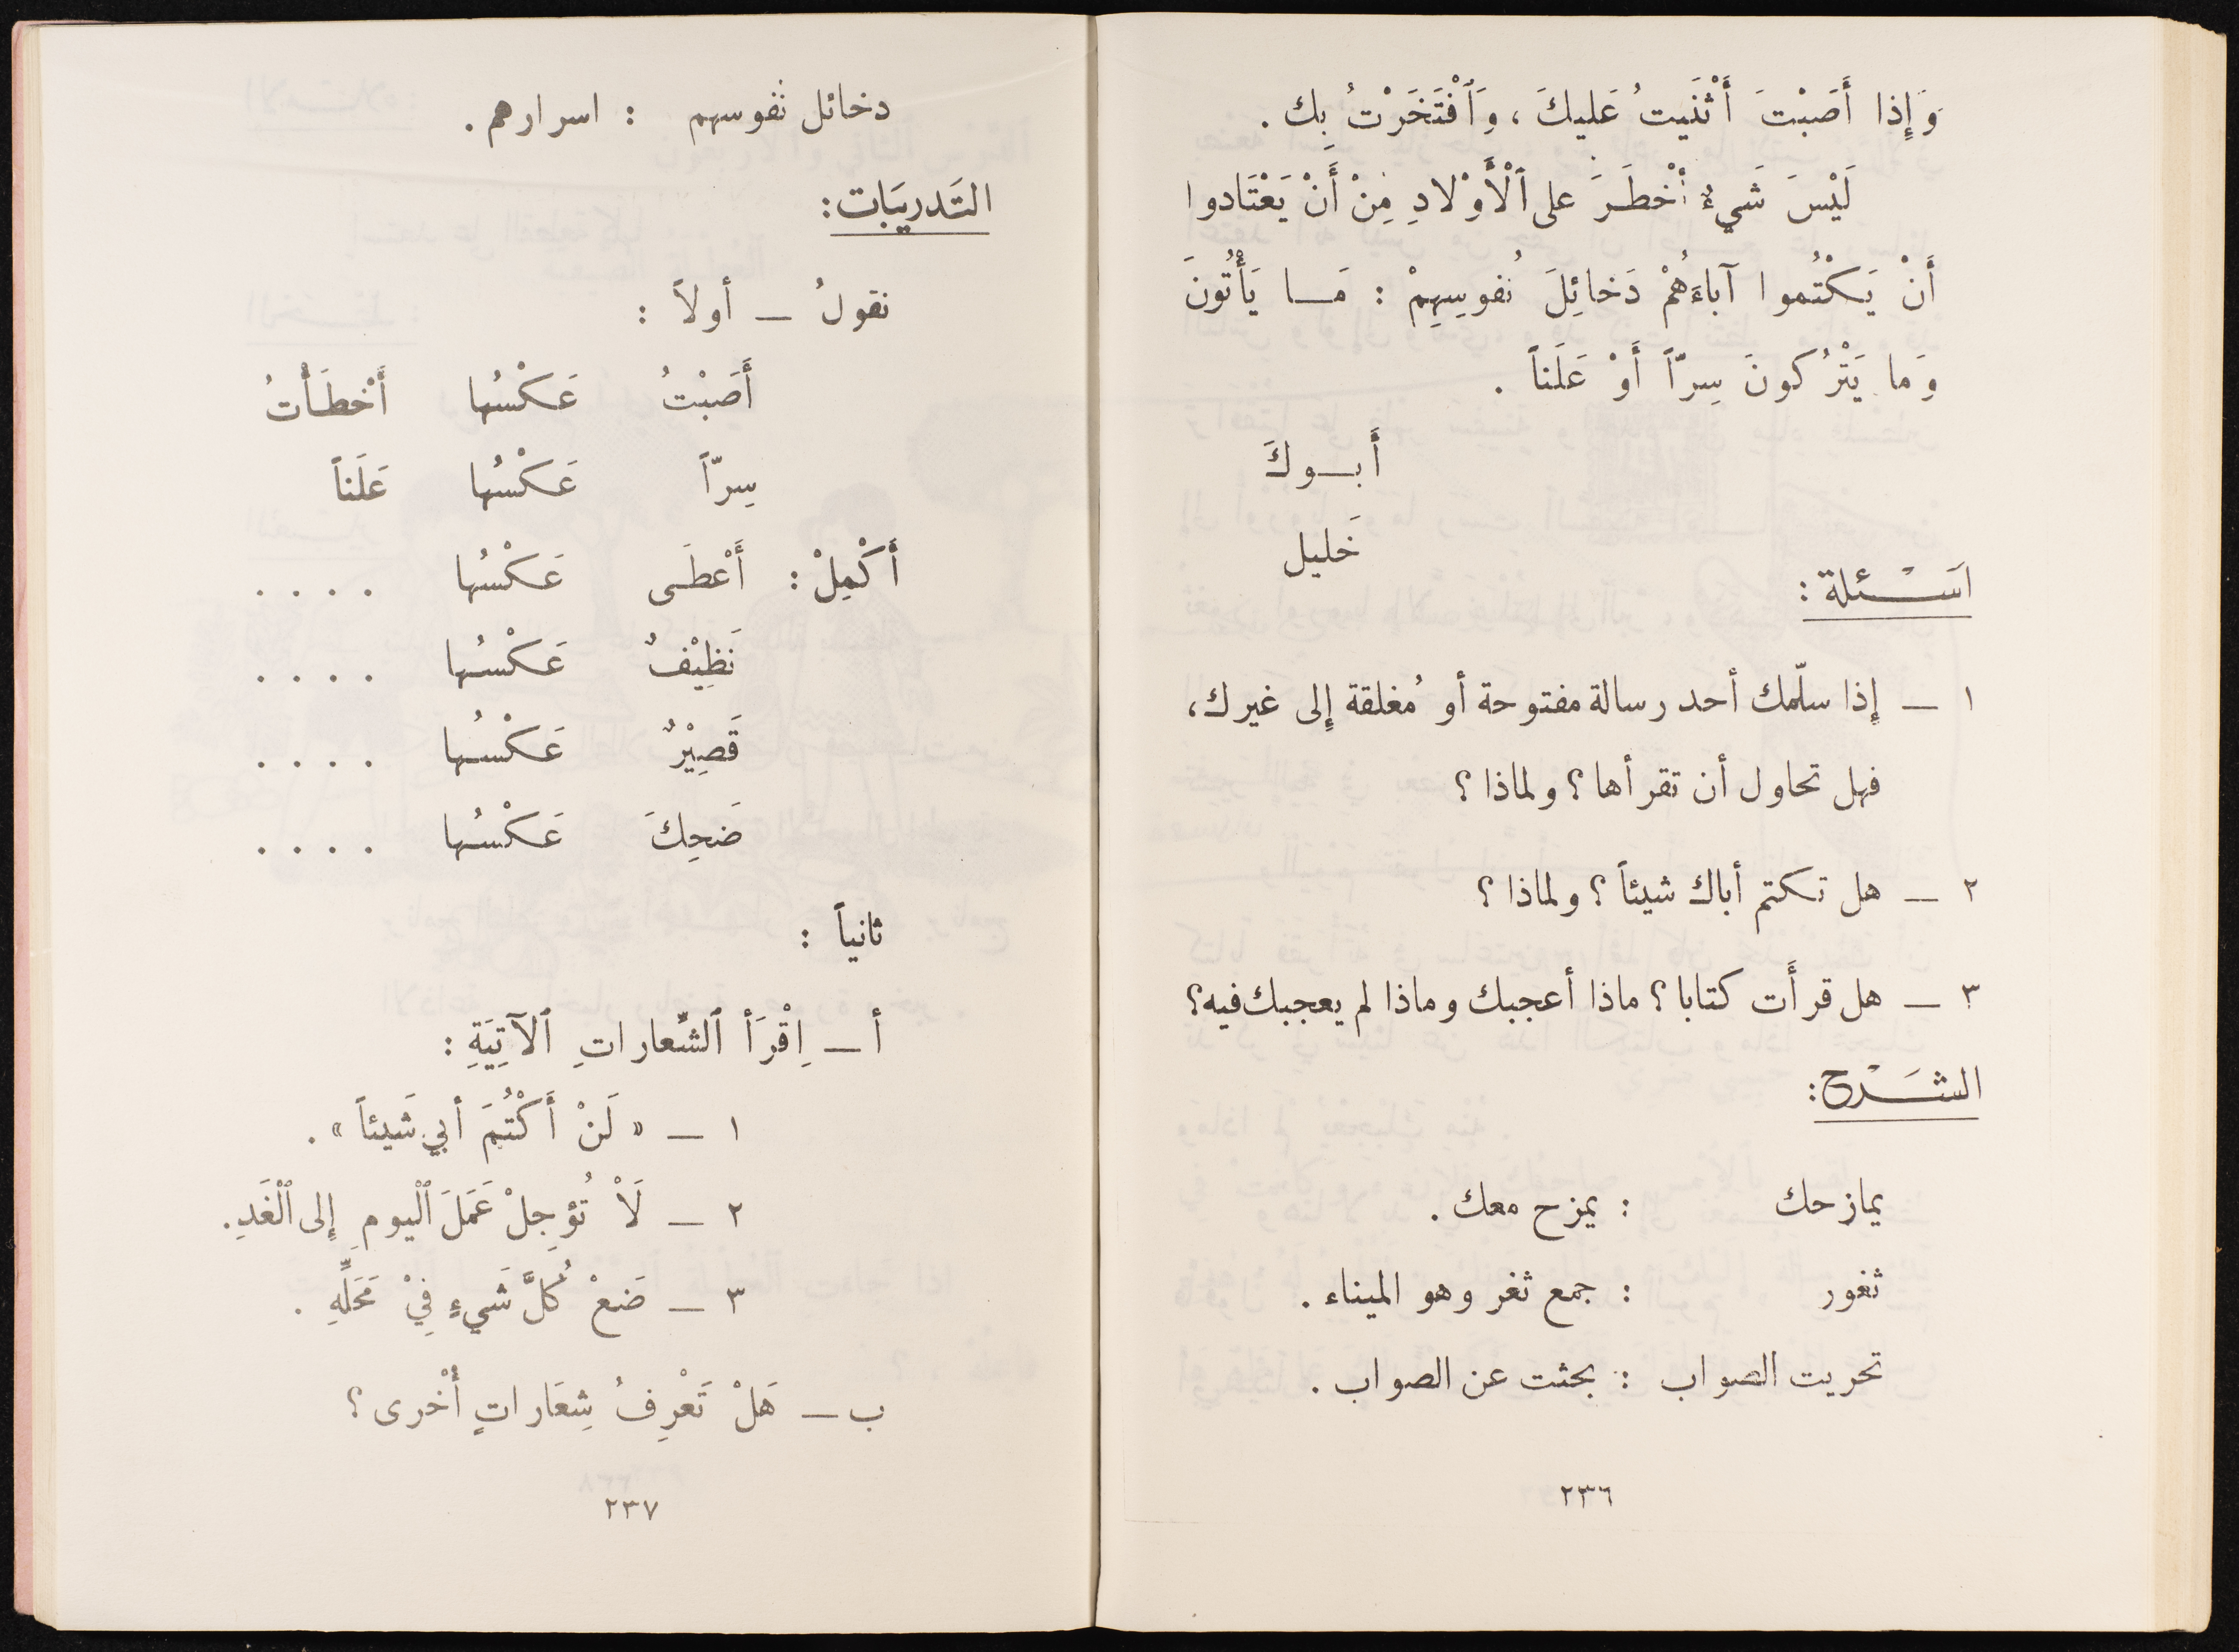 وَإِذا أَصَبْتَ أَثْنَيتُ عَليكَ، وَٱفْتَخَرْتُ بِك.
لَيْسَ شَيءٌ أَخْطَرَ على ٱلْأَوْلادِ مِنْ أَنْ يَعْتَادوا
أَنْ يَكْتُموا آباءَهُمْ دَخائِلَ نُفوسِهِمْ : مَا يَأْتُونَ
وَما يَتْرُكونَ سِرّاً أَوْ عَلَناً .
أَبوكَ
خَليل
اسْئلة :
١ — إِذا سلّمك أحد رسالة مفتوحة أو مُغلقة إِلى غيرك،
فهل تحاول أن تقرأها ؟ ولماذا ؟
٢ — هل تكتم أباك شيئاً ؟ ولماذا ؟
٣ — هل قرأَت كتابا ؟ ماذا أعجبك وماذا لم يعجبك فيه؟
الشَرْح :
يمازحك : يمزح معك .
ثغور : جمع ثغر وهو الميناء .
تحريت الصواب : بحثت عن الصواب .
٢٣٦
دخائل نفوسهم : اسرارهم .
التَدريَبات :
نقولُ — أولاً :
أَصَبْتُ عَكْسُها أَخْطَأْتُ
سِرّاً عَكْسُها عَلَناً
أَكْمِلْ : أَعْطَى عَكْسُها . . . .
نَظِيْفٌ عَكْسُها . . . .
قَصِيْرٌ عَكْسُها . . . .
ضَحِكَ عَكْسُها . . . .
ثانياً :
أ — اِقْرَأ ٱلشِّعاراتِ ٱلآتِيَةِ :
١ — « لَنْ أَكْتُمَ أبي شَيئاً » .
٢ — لَاْ تُؤجِلْ عَمَلَ ٱلْيومِ إِلى ٱلْغَدِ.
٣ — ضَعْ كُلَّ شَيءٍ فِيْ مَحَلِّهِ .
ب — هَلْ تَعْرِفُ شِعَاراتٍ أُخْرى ؟
٢٣٧